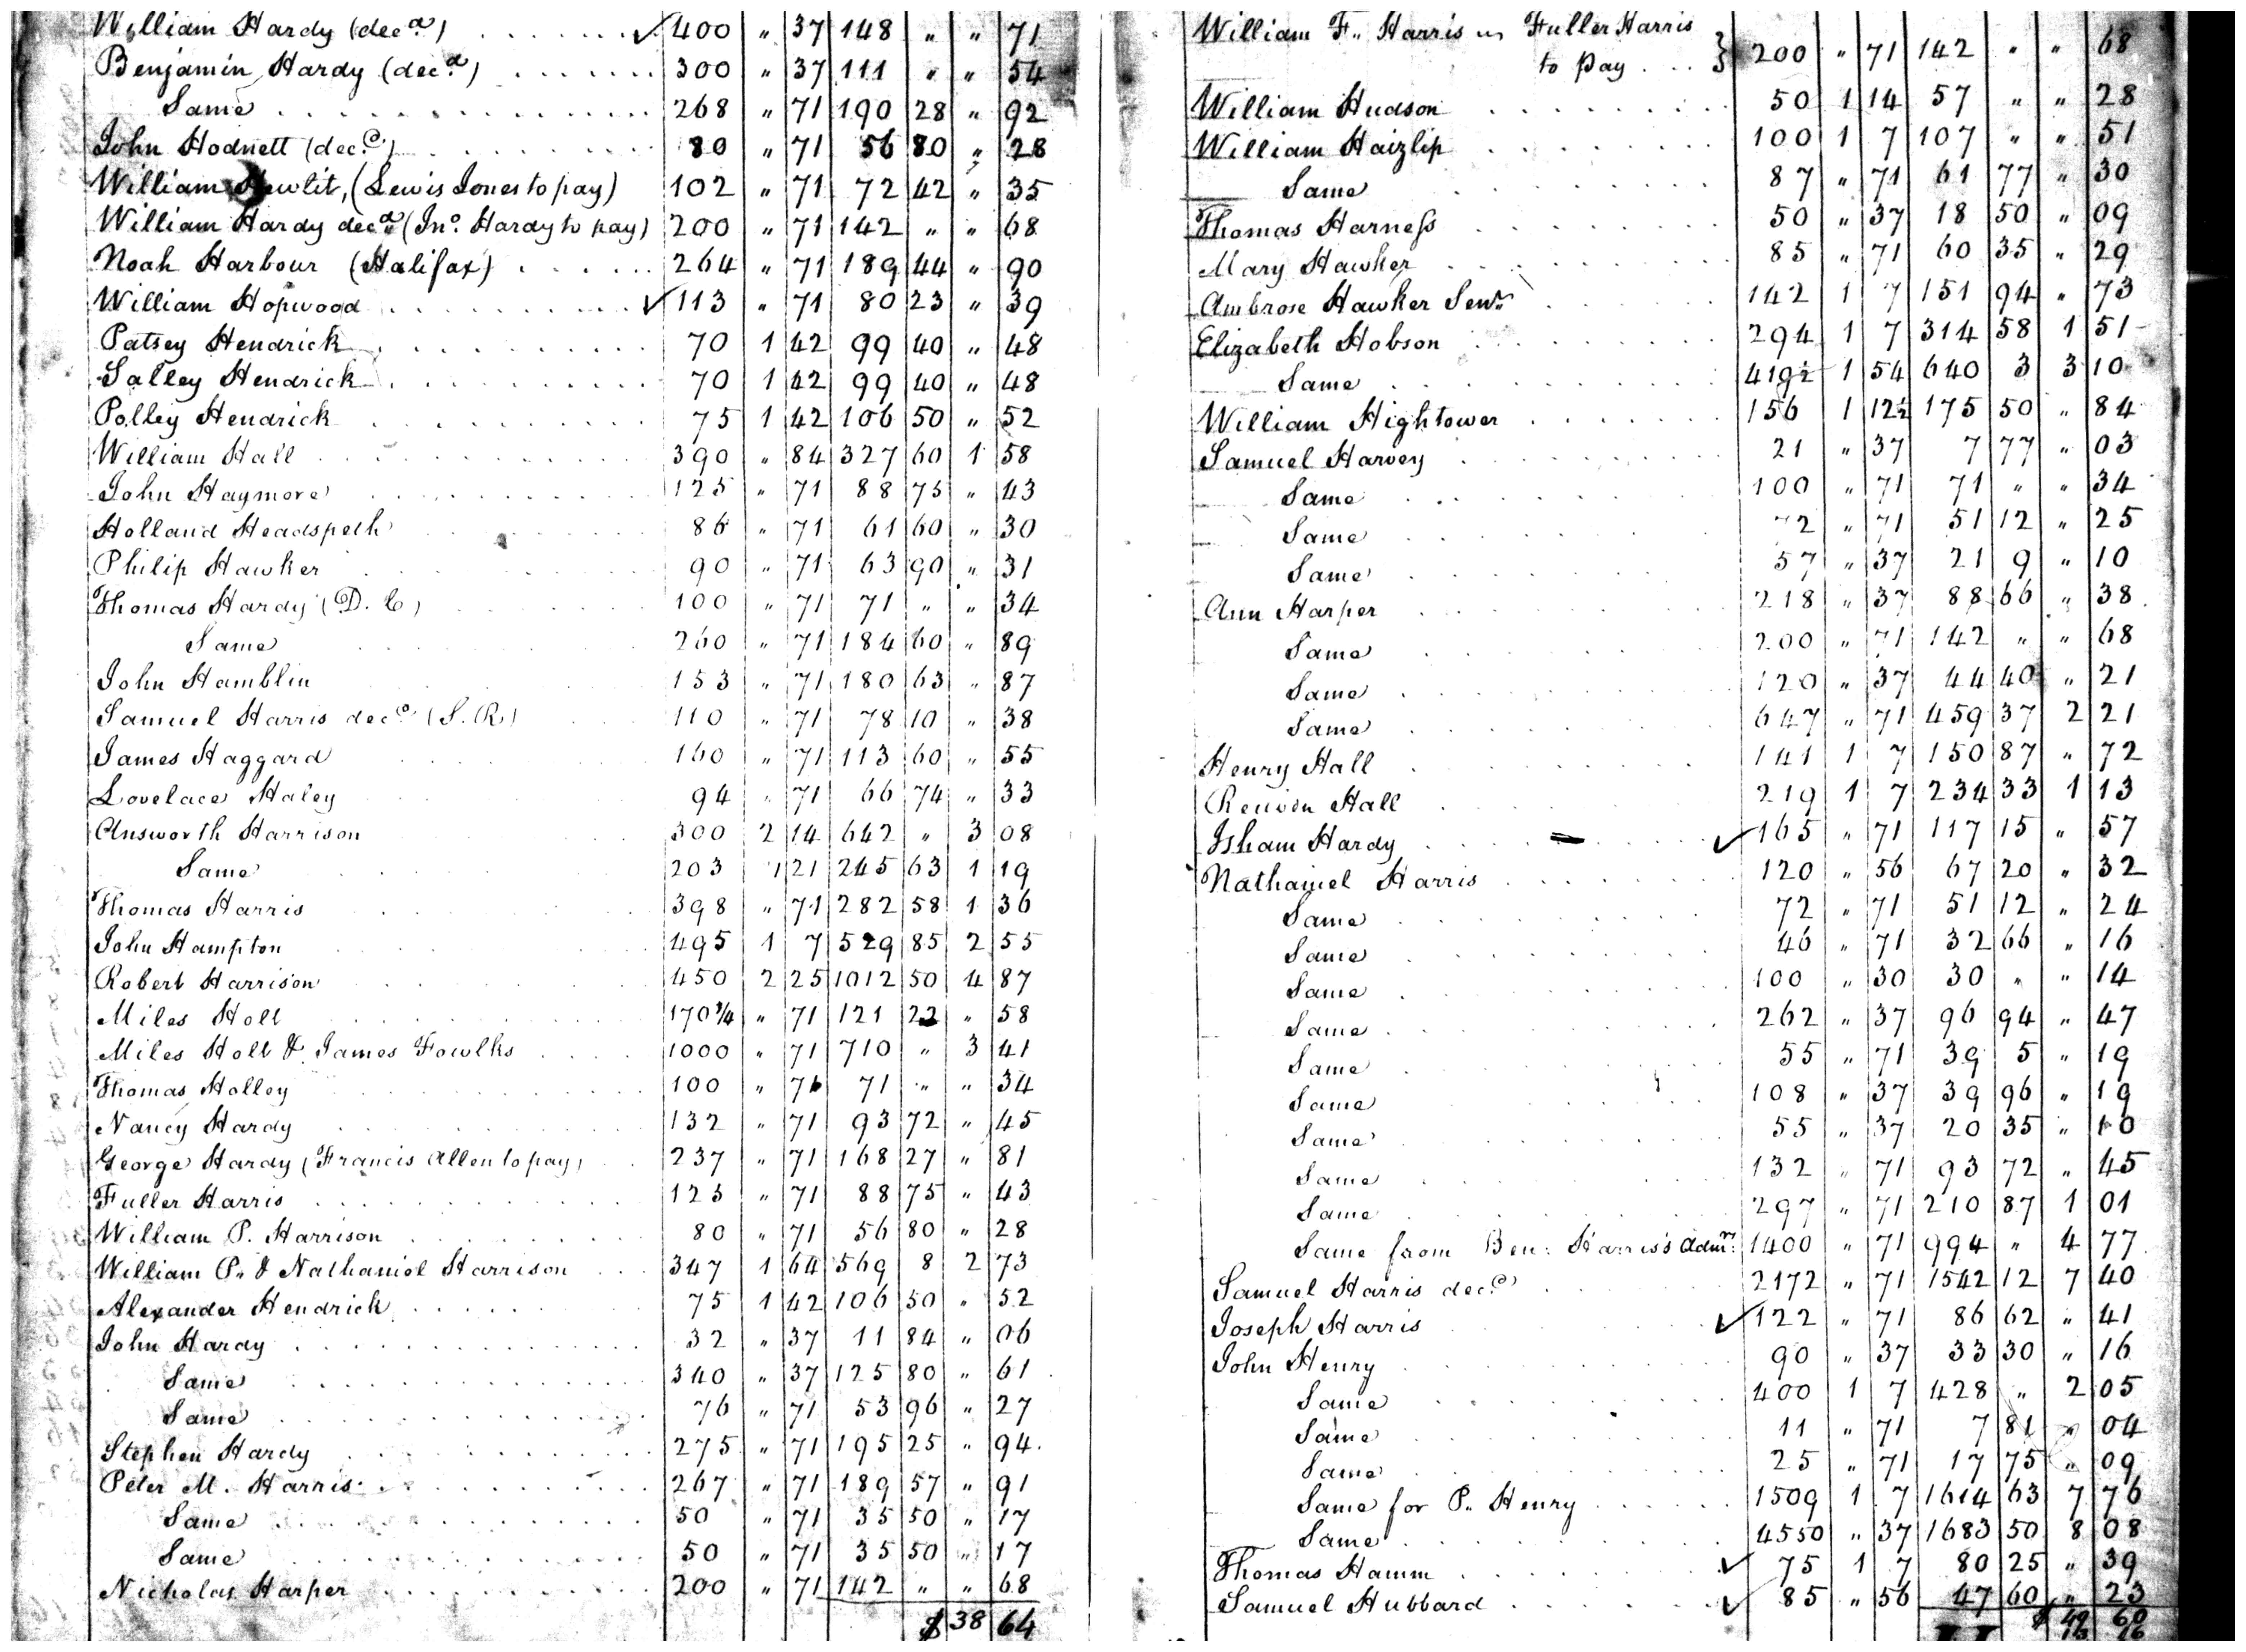 William Hardy (decd) ✓ 400 " 37 148 " " 71
Benjamin Hardy (decd) 300 " 37 111 " " 54
Same 268 " 71 190 28 " 92
John Hodnett (decd) 80 " 71 56 80 " 28
William Hewlit, (Lewis Jones to pay) 102 " 71 72 42 " 35
William Hardy decd (Jno. Hardy to pay) 200 " 71 142 " " 68
Noah Harbour (Halifax) 264 " 71 189 44 " 90
William Hopwood ✓ 113 " 71 80 23 " 39
Patsey Hendrick 70 1 42 99 40 " 48
Salley Hendrick 70 1 42 99 40 " 48
Polley Hendrick 75 1 42 106 50 " 52
William Hall 390 " 84 327 60 1 58
John Haymore 125 " 71 88 75 " 43
Holland Headspeth 86 " 71 61 60 " 30
Philip Hawker 90 " 71 63 90 " 31
Thomas Hardy (D. C) 100 " 71 71 " " 34
Same 260 " 71 184 60 " 89
John Hamblin 153 " 71 180 63 " 87
Samuel Harris decd (S. R) 110 " 71 78 10 " 38
James Haggard 160 " 71 113 60 " 55
Lovelace Haley 94 " 71 66 74 " 33
Answorth Harrison 300 2 14 642 " 3 08
Same 203 1 21 245 63 1 19
Thomas Harris 398 " 71 282 58 1 36
John Hampton 495 1 7 529 85 2 55
Robert Harrison 450 2 25 1012 50 4 87
Miles Holt 170¾ " 71 121 22 " 58
Miles Holt & James Fowlks 1000 " 71 710 " 3 41
Thomas Holley 100 " 71 71 " " 34
Nancy Hardy 132 " 71 93 72 " 45
George Hardy (Francis Allen to pay) 237 " 71 168 27 " 81
Fuller Harris 125 " 71 88 75 " 43
William P. Harrison 80 " 71 56 80 " 28
William P. & Nathaniel Harrison 347 1 64 569 8 2 73
Alexander Hendrick 75 1 42 106 50 " 52
John Hardy 32 " 37 11 84 " 06
Same 340 " 37 125 80 " 61
Same 76 " 71 53 96 " 27
Stephen Hardy 275 " 71 195 25 " 94
Peter M. Harris 267 " 71 189 57 " 91
Same 50 " 71 35 50 " 17
Same 50 " 71 35 50 " 17
Nicholas Harper 200 " 71 142 " " 68
$ 38 64
William F. Harris Fuller Harris
to pay } 200 " 71 142 " " 68
William Hudson 50 1 14 57 " " 28
William Haizlip 100 1 7 107 " " 51
Same 87 " 71 61 77 " 30
Thomas Harness 50 " 37 18 50 " 09
Mary Hawker 85 " 71 60 35 " 29
Ambrose Hawker Senr 142 1 7 151 94 " 73
Elizabeth Hobson 294 1 7 314 58 1 51
Same 419½ 1 54 640 3 3 10
William Hightower 156 1 12½ 175 50 " 84
Samuel Harvey 21 " 37 7 77 " 03
Same 100 " 71 71 " " 34
Same 72 " 71 51 12 " 25
Same 57 " 37 21 9 " 10
Ann Harper 218 " 37 88 66 " 38
Same 200 " 71 142 " " 68
Same 120 " 37 44 40 " 21
Same 647 " 71 459 37 2 21
Henry Hall 141 1 7 150 87 " 72
Reuven Hall 219 1 7 234 33 1 13
Isham Hardy ✓ 165 " 71 117 15 " 57
Nathaniel Harris 120 " 56 67 20 " 32
Same 72 " 71 51 12 " 24
Same 46 " 71 32 66 " 16
Same 100 " 30 30 " " 14
Same 262 " 37 96 94 " 47
Same 55 " 71 39 5 " 19
Same 108 " 37 39 96 " 19
Same 55 " 37 20 35 " 10
Same 132 " 71 93 72 " 45
Same 297 " 71 210 87 1 01
Same from Ben: Harris's Admr. 1400 " 71 994 " 4 77
Samuel Harris decd 2172 " 71 1542 12 7 40
Joseph Harris ✓ 122 " 71 86 62 " 41
John Henry 90 " 37 33 30 " 16
Same 400 1 7 428 " 2 05
Same 11 " 71 7 81 " 04
Same 25 " 71 17 75 " 09
Same for P. Henry 1509 1 7 1614 63 7 76
Same 4550 " 37 1683 50 8 08
Thomas Hamm ✓ 75 1 7 80 25 " 39
Samuel Hubbard ✓ 85 " 56 47 60 " 23